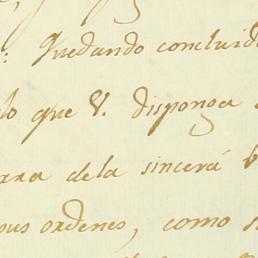 : Quedando concluid
lo que V. disponga
dela sincerá
ordenes, como